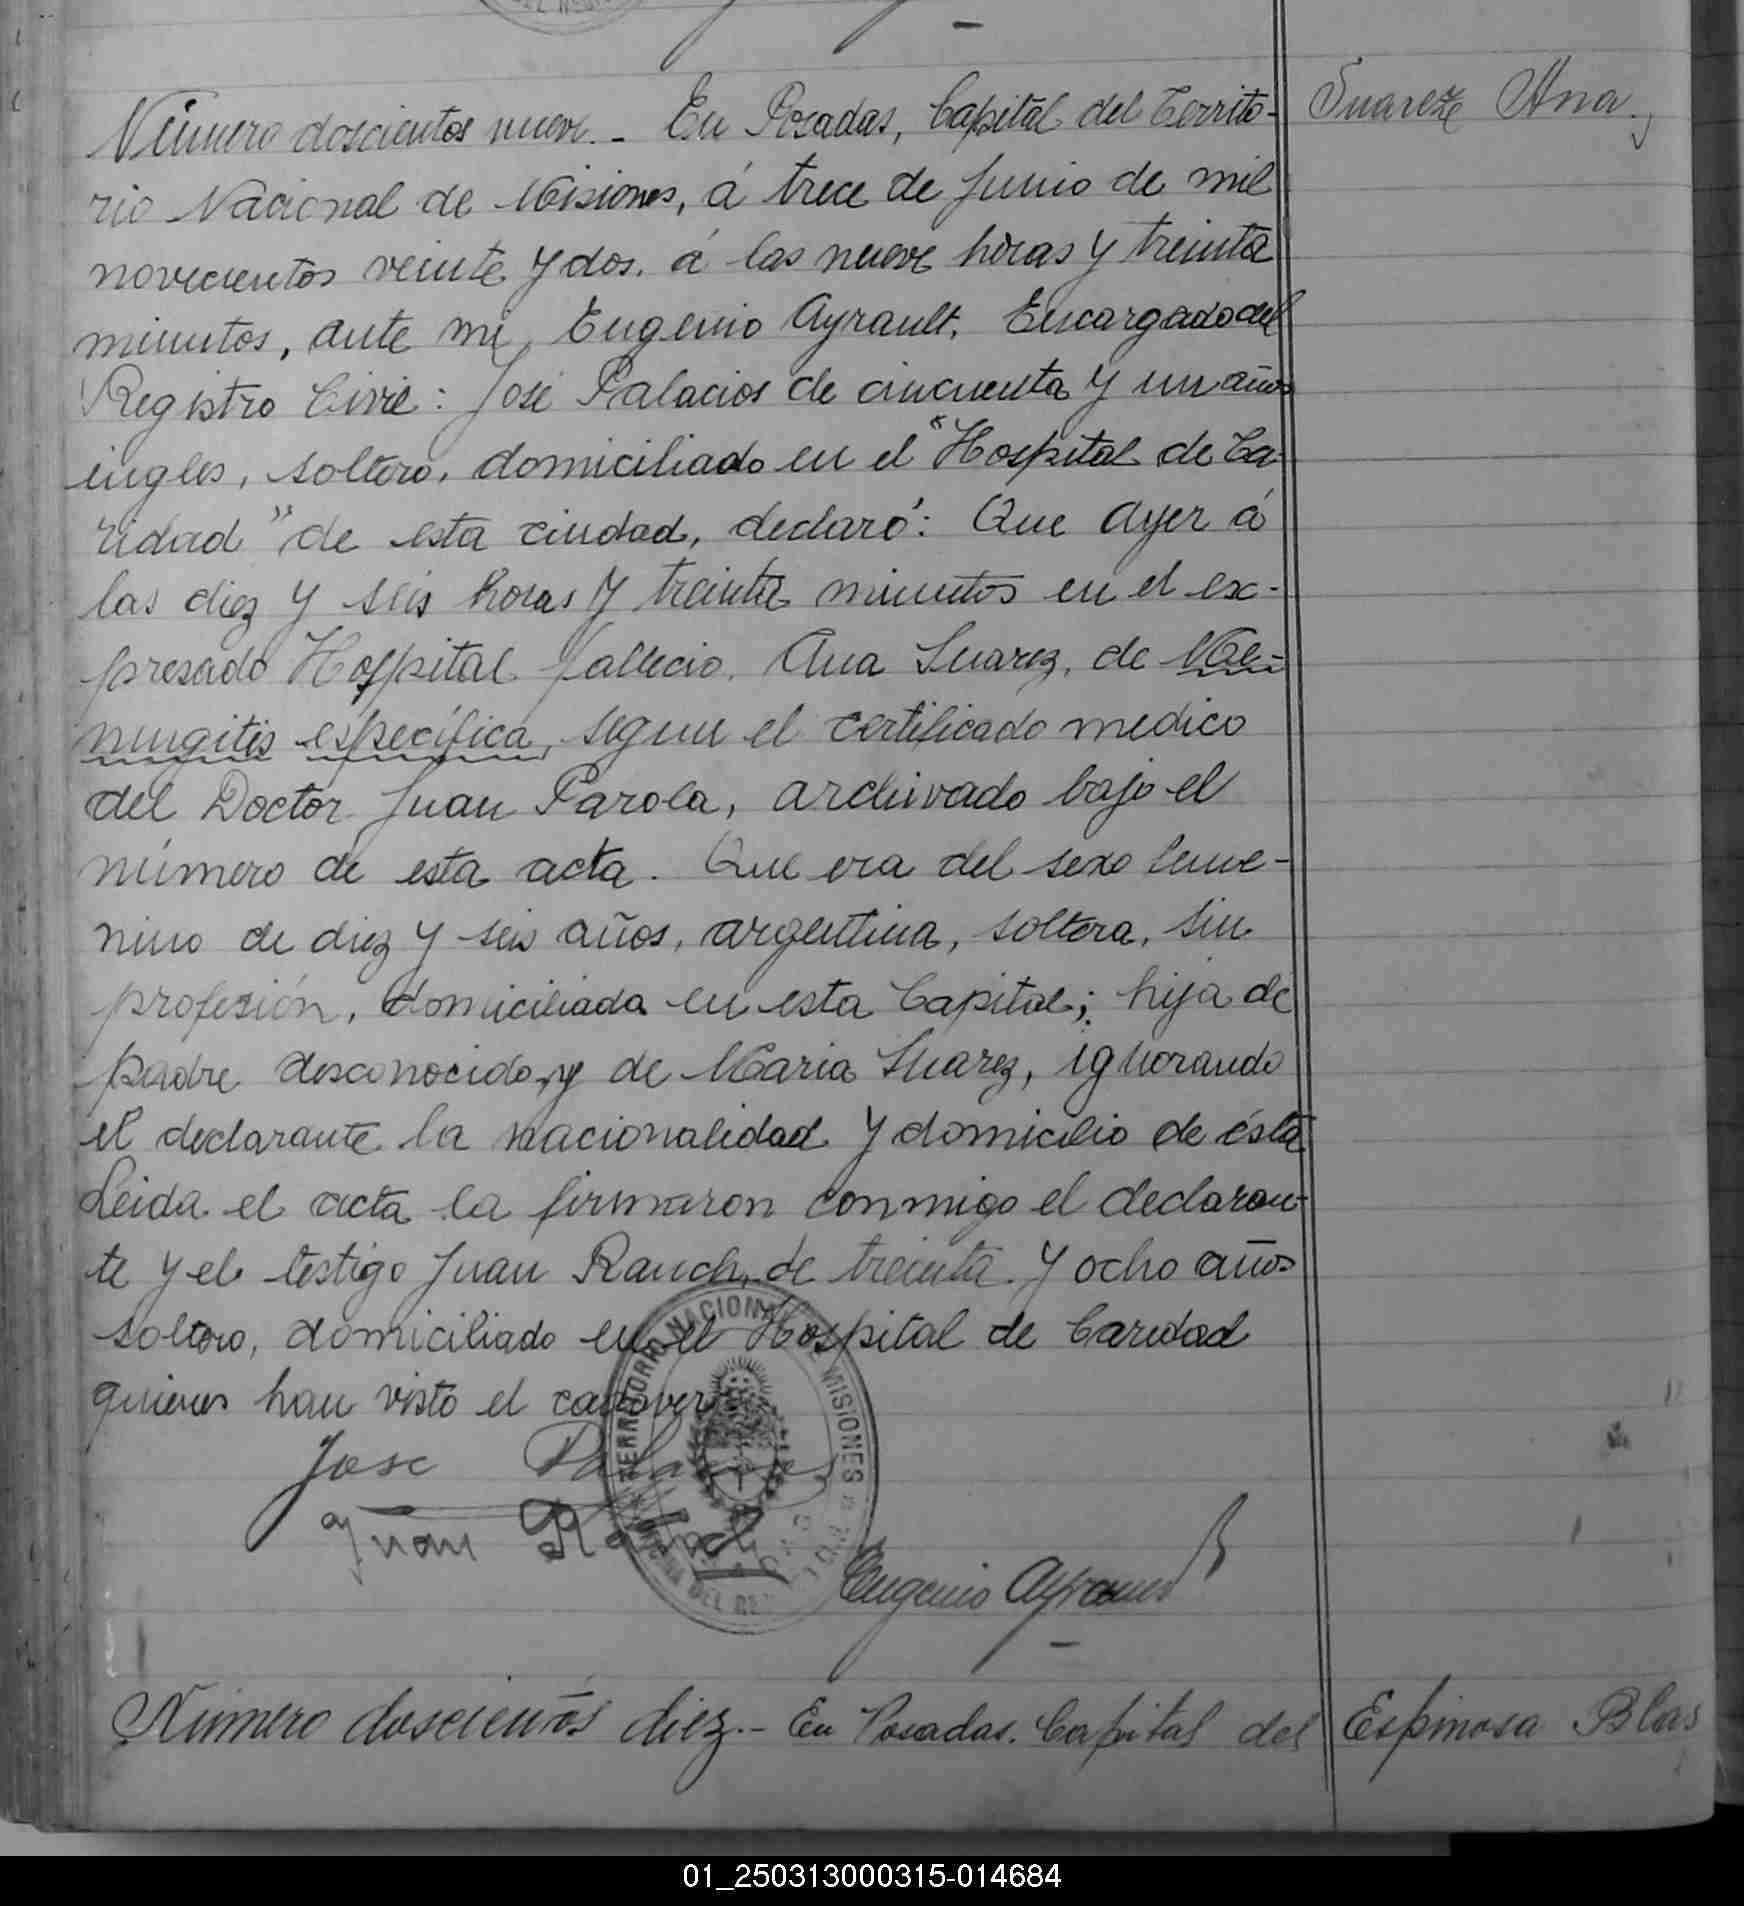 Suareze Ana.
Número doscientos nueve.- En Posadas, Capital del Territo-
rio Nacional de Misiones, á trece de Junio de mil
novecientos veinte y dos. á las nueve horas y treinta
minutos, ante mi, Eugenio Ayrault, Encargado del
Registro Civil: José Palacios de cincuenta y un años
ingles, soltero, domiciliado en el "Hospital de Ca-
ridad" de esta ciudad, declaró: Que ayer á
las diez y seis horas y treinta minutos en el ex-
presado Hospital fallecio, Ana Suarez, de Me-
ningitis específica, segun el certificado medico
del Doctor Juan Parola, archivado bajo el
número de esta acta. Que era del sexo feme-
nino de diez y seis años, argentina, soltera, sin
profesión, domiciliada en esta Capital; hija de
padre desconocido, y de Maria Suarez, ignorando
el declarante la nacionalidad y domicilio de ésta
Leida el acta la firmaron conmigo el declaran-
te y el testigo Juan Rauch, de treinta y ocho años
soltero, domiciliado en el Hospital de Caridad
quienes han visto el cadaver
TERRITORIO NACIONAL DE MISIONES
Jose Palacios
Juan
Eugenio Ayrault
Número doscientos diez.- En Posadas. Capital del
Espinosa Blas
01_250313000315-014684